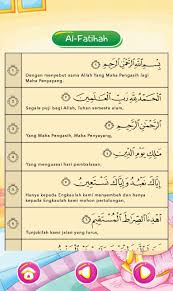 Al-Fatihah
بِسْمِ اللَّهِ الرَّحْمَٰنِ الرَّحِيمِ
Dengan menyebut nama Allah Yang Maha Pengasih lagi
Maha Penyayang.
الْحَمْدُ لِلَّهِ رَبِّ الْعَالَمِينَ
Segala puji bagi Allah, Tuhan semesta alam,
الرَّحْمَٰنِ الرَّحِيمِ
Yang Maha Pengasih, Maha Penyayang,
مَالِكِ يَوْمِ الدِّينِ
Yang menguasai hari pembalasan.
إِيَّاكَ نَعْبُدُ وَإِيَّاكَ نَسْتَعِينُ
Hanya kepada Engkaulah kami menyembah dan hanya
kepada Engkaulah kami mohon pertolongan.
اهْدِنَا الصِّرَاطَ الْمُسْتَقِيمَ
Tunjukilah kami jalan yang lurus,